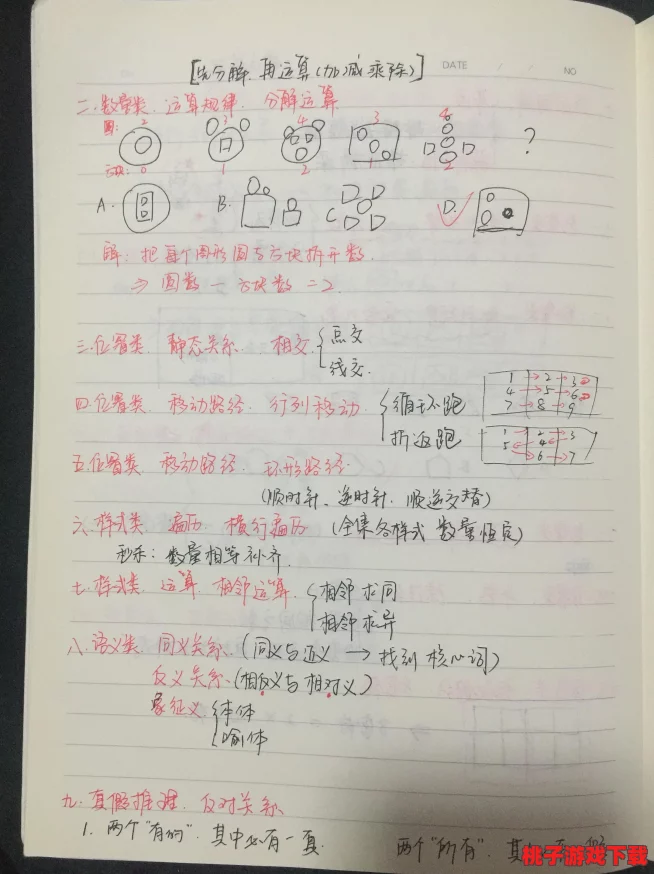 [先分解.再运算(加减乘除)]
DATE / / NO
二.数量类.运算规律.分解运算
圆: 2 3 4 3 4
方块: 0 1 2 1 2 ?
A. B. C. D.
解: 把每个图形圆与方块拆开数.
⇒ 圆数 — 方块数 = 2.
三.位置类 静态关系. 相交.{点交
线交.
四.位置类 移动路径. 行列移动 {循环跑
折返跑
1 2 3
4 5 6
7 8 9
1 2 3
5 4
6 7
五.位置类 移动路径. 环形路径.
(顺时针、逆时针. 顺逆交替)
六.样式类. 遍历. 横行遍历. (全集各样式 数量恒定)
秒杀: 数量相等补齐.
七.样式类. 运算. 相邻运算.{相邻求同
相邻求异
八.语义类. 同义关系.(同义与近义 → 找到核心词)
反义关系.(相反义与相对义)
象征义{本体
喻体
九.真假推理. 反对关系
1. 两个"有的". 其中必有一真. 两个"所有".
桃子游戏下载